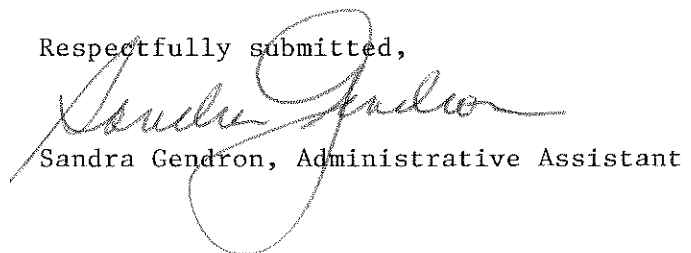 Respectfully submitted,
Sandra Gendron
Sandra Gendron, Administrative Assistant